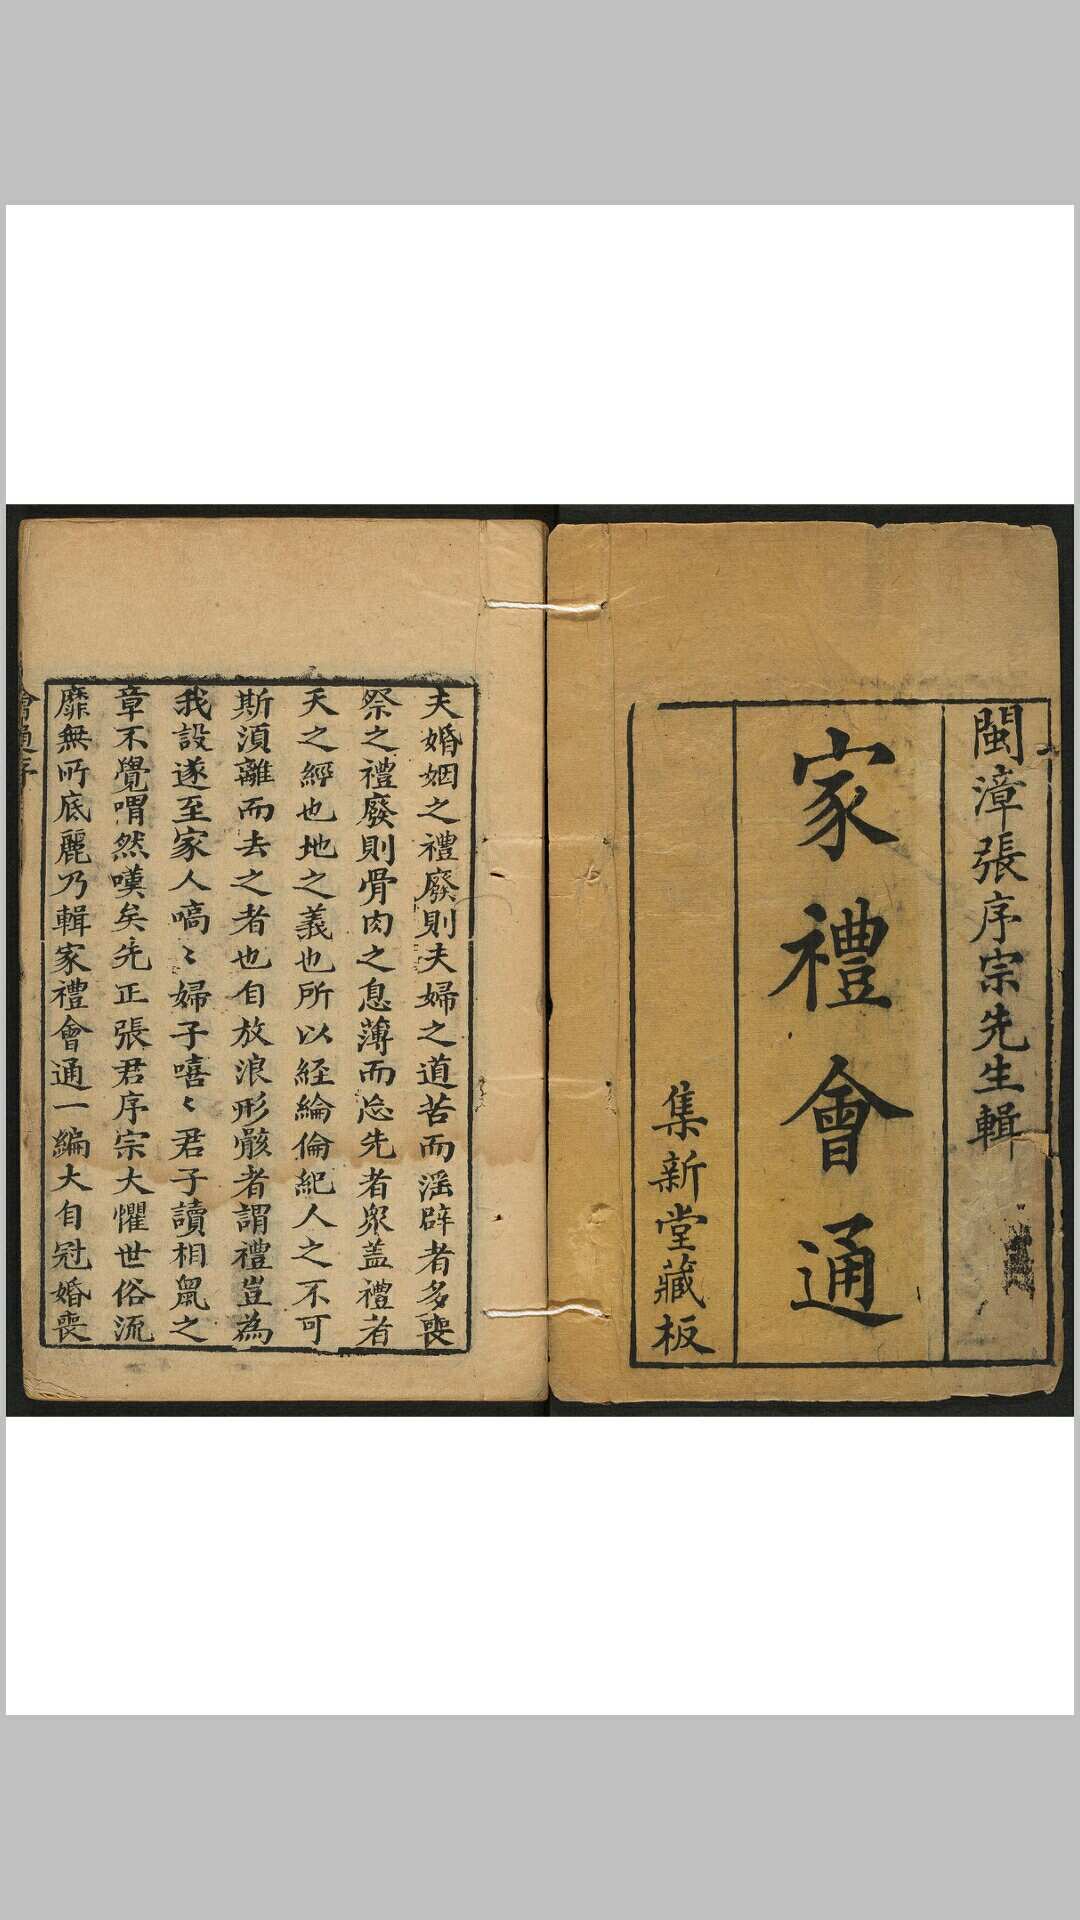 閩漳張序宗先生輯
家禮會通
集新堂藏板
夫婚姻之禮廢則夫婦之道苦而滛辟者多喪
祭之禮廢則骨肉之恩薄而忘先者衆盖禮者
天之經也地之義也所以経綸倫紀人之不可
斯湏離而去之者也自放浪形骸者謂禮豈為
我設遂至家人嗃〻婦子嘻〻君子讀相鼠之
章不覺喟然嘆矣先正張君序宗大懼世俗流
靡無所底麗乃輯家禮會通一編大自冠婚喪
會通序